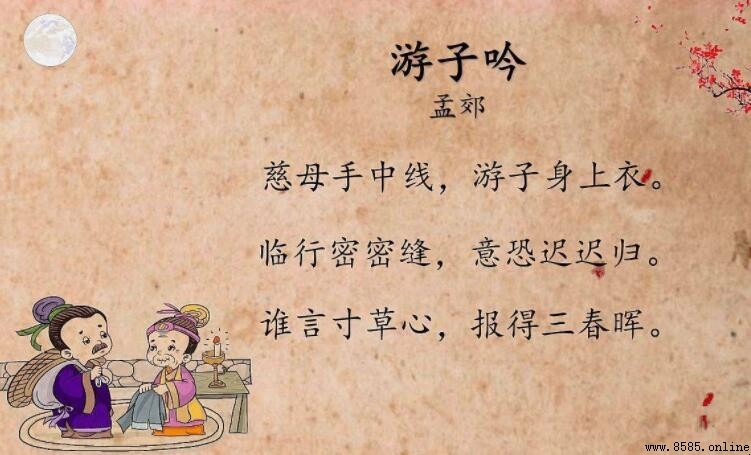 游子吟
孟郊
慈母手中线，游子身上衣。
临行密密缝，意恐迟迟归。
谁言寸草心，报得三春晖。
www.8585.online